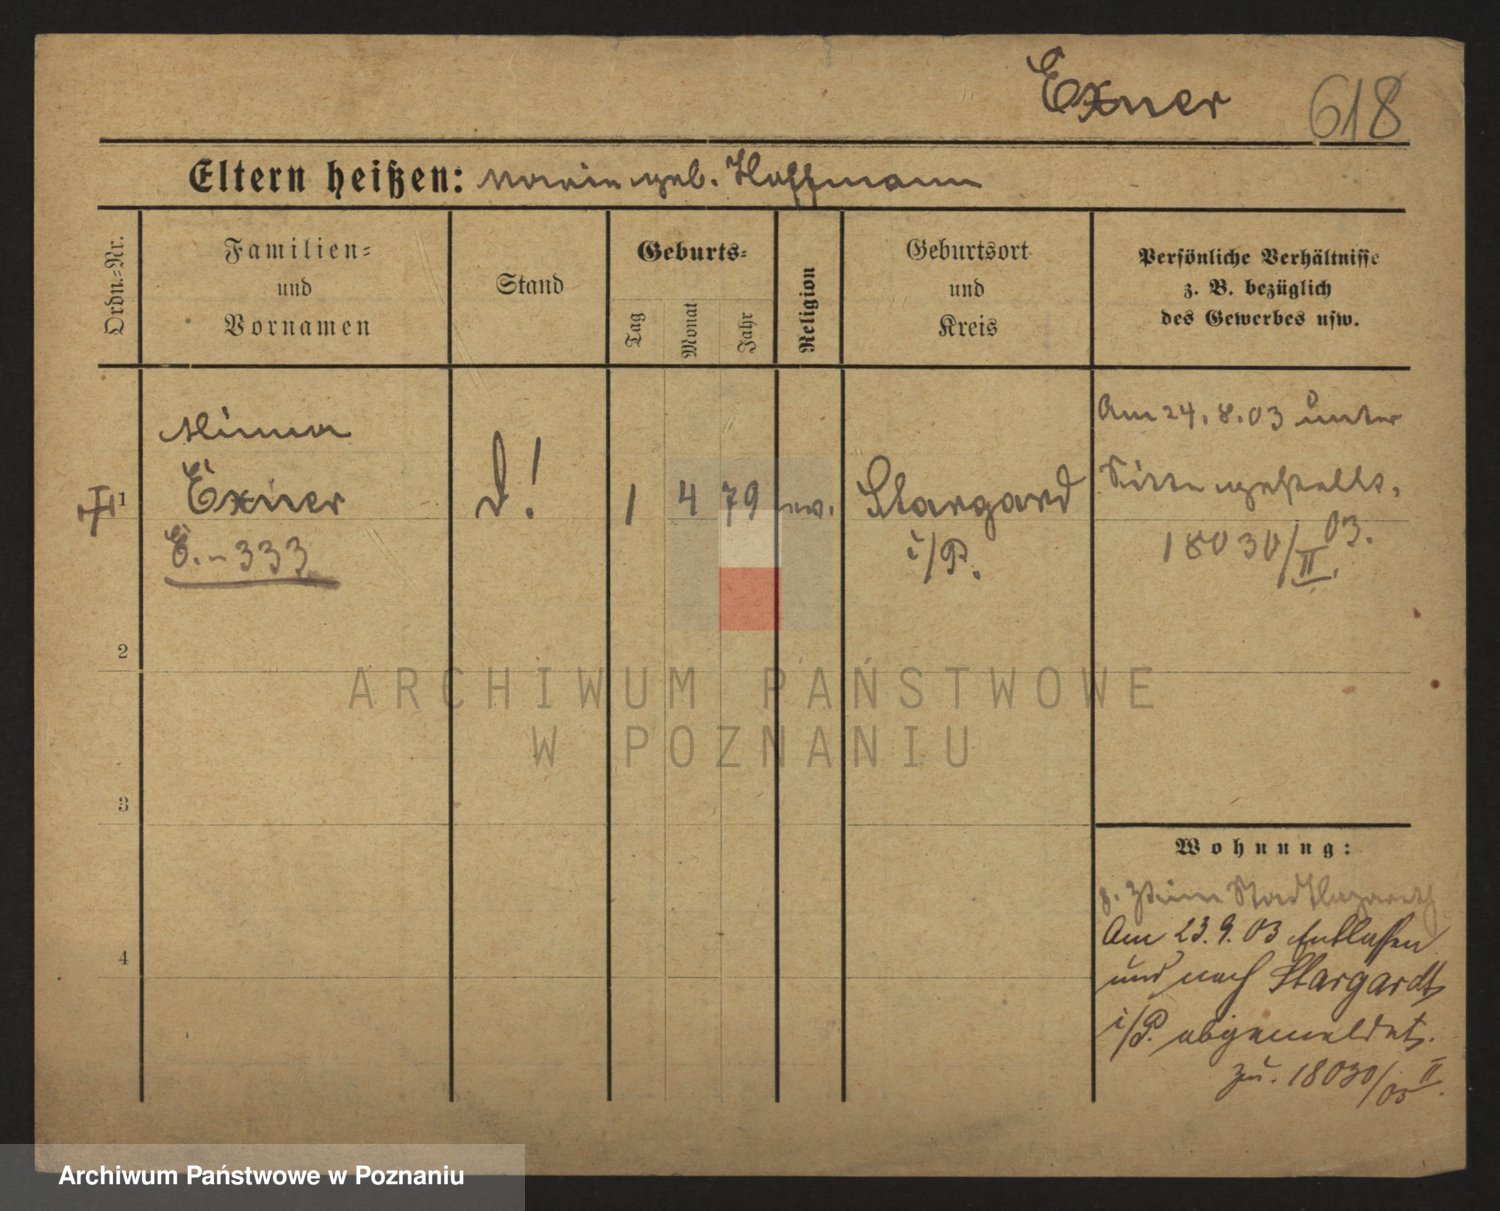 Exner 618
Eltern heißen: Marie geb. Hoffmann
Ordn.=Nr.
Familien=
und
Vornamen
Stand
Geburts=
Tag
Monat
Jahr
Religion
Geburtsort
und
Kreis
Persönliche Verhältnisse
z. B. bezüglich
des Gewerbes usw.
1
Minna
Exner
E. - 333
d!
1 4 79 ev.
Stargard
i/P.
Am 24.8.03 unter
Sitte gestellt.
18030/II 03.
2
3
4
Wohnung:
z. Zt. im Stadtlazareth
Am 23.9.03 entlassen
und nach Stargardt
i/P. abgemeldet.
zu. 18030/03 II.
ARCHIWUM PAŃSTWOWE
W POZNANIU
Archiwum Państwowe w Poznaniu